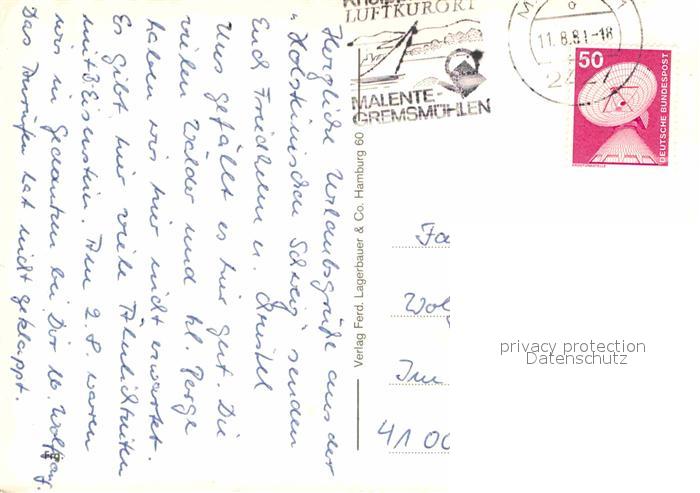 Herzliche Urlaubsgrüße aus der
"Holsteinischen Schweiz" senden
Euch Friedhelm u. Christel
Uns gefällt es hier gut. Die
vielen Wälder und kl. Berge
haben wir hier nicht erwartet.
Es gibt hier viele Ähnlichkeiten
mit Eisenstein. Am 2.8. waren
wir in Gedanken bei Dir lb. Wolfgang.
Das Anrufen hat nicht geklappt.
LUFTKURORT
MALENTE-
GREMSMÜHLEN
11.8.81-18
242
50
DEUTSCHE BUNDESPOST
Verlag Ferd. Lagerbauer & Co. Hamburg 60
Fa
Wol
Im
41 00
privacy protection
Datenschutz